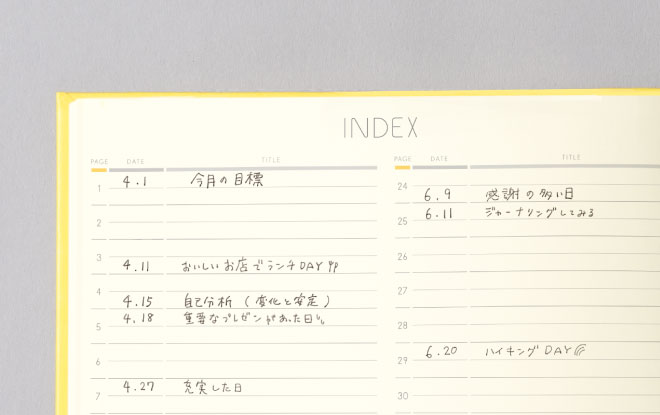 INDEX
PAGE DATE TITLE
1 4.1 今月の目標
2
3 4.11 おいしいお店でランチDAY
4 4.15 自己分析（変化と安定）
5 4.18 重要なプレゼンがあった日
6
7 4.27 充実した日
PAGE DATE TITLE
24 6.9 感謝の多い日
25 6.11 ジャーナリングしてみる
26
27
28
29 6.20 ハイキングDAY
30